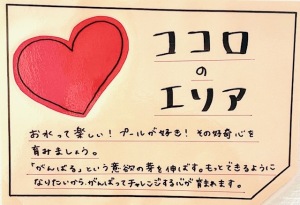 ココロ
の
エリア
おがって楽しい！プールが好き！その好奇心を
育みましょう。
「がんばる」という意欲の芽を伸ばす。もっとできるように
なりたいから、がんばってチャレンジする心が育まれます。